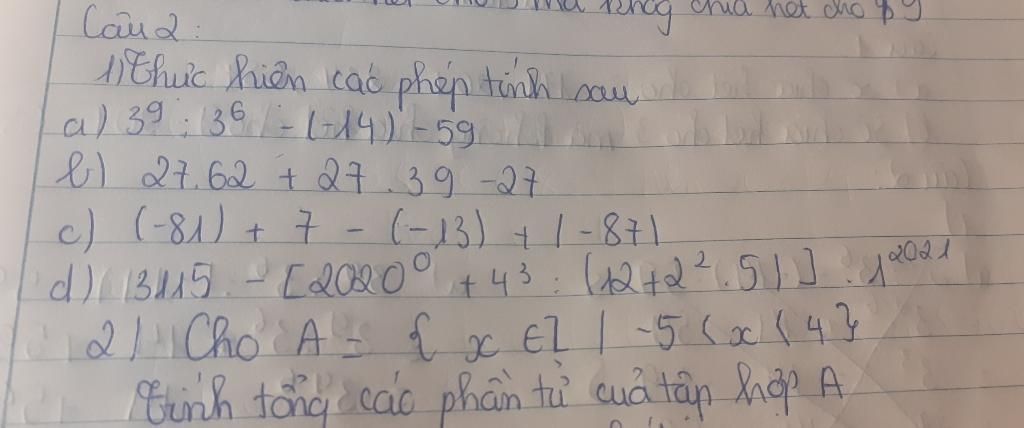 chia hết cho 9
Câu 2:
1) Thực hiện các phép tính sau
a) 3⁹ : 3⁶ - (-14) - 59
b) 27.62 + 27.39 - 27
c) (-81) + 7 - (-13) + |-87|
d) 3115 - [2020⁰ + 4³ : (12 + 2² . 5)] . 1²⁰²¹
2) Cho A = { x ∈ Z | -5 < x < 4 }
tính tổng các phần tử của tập hợp A